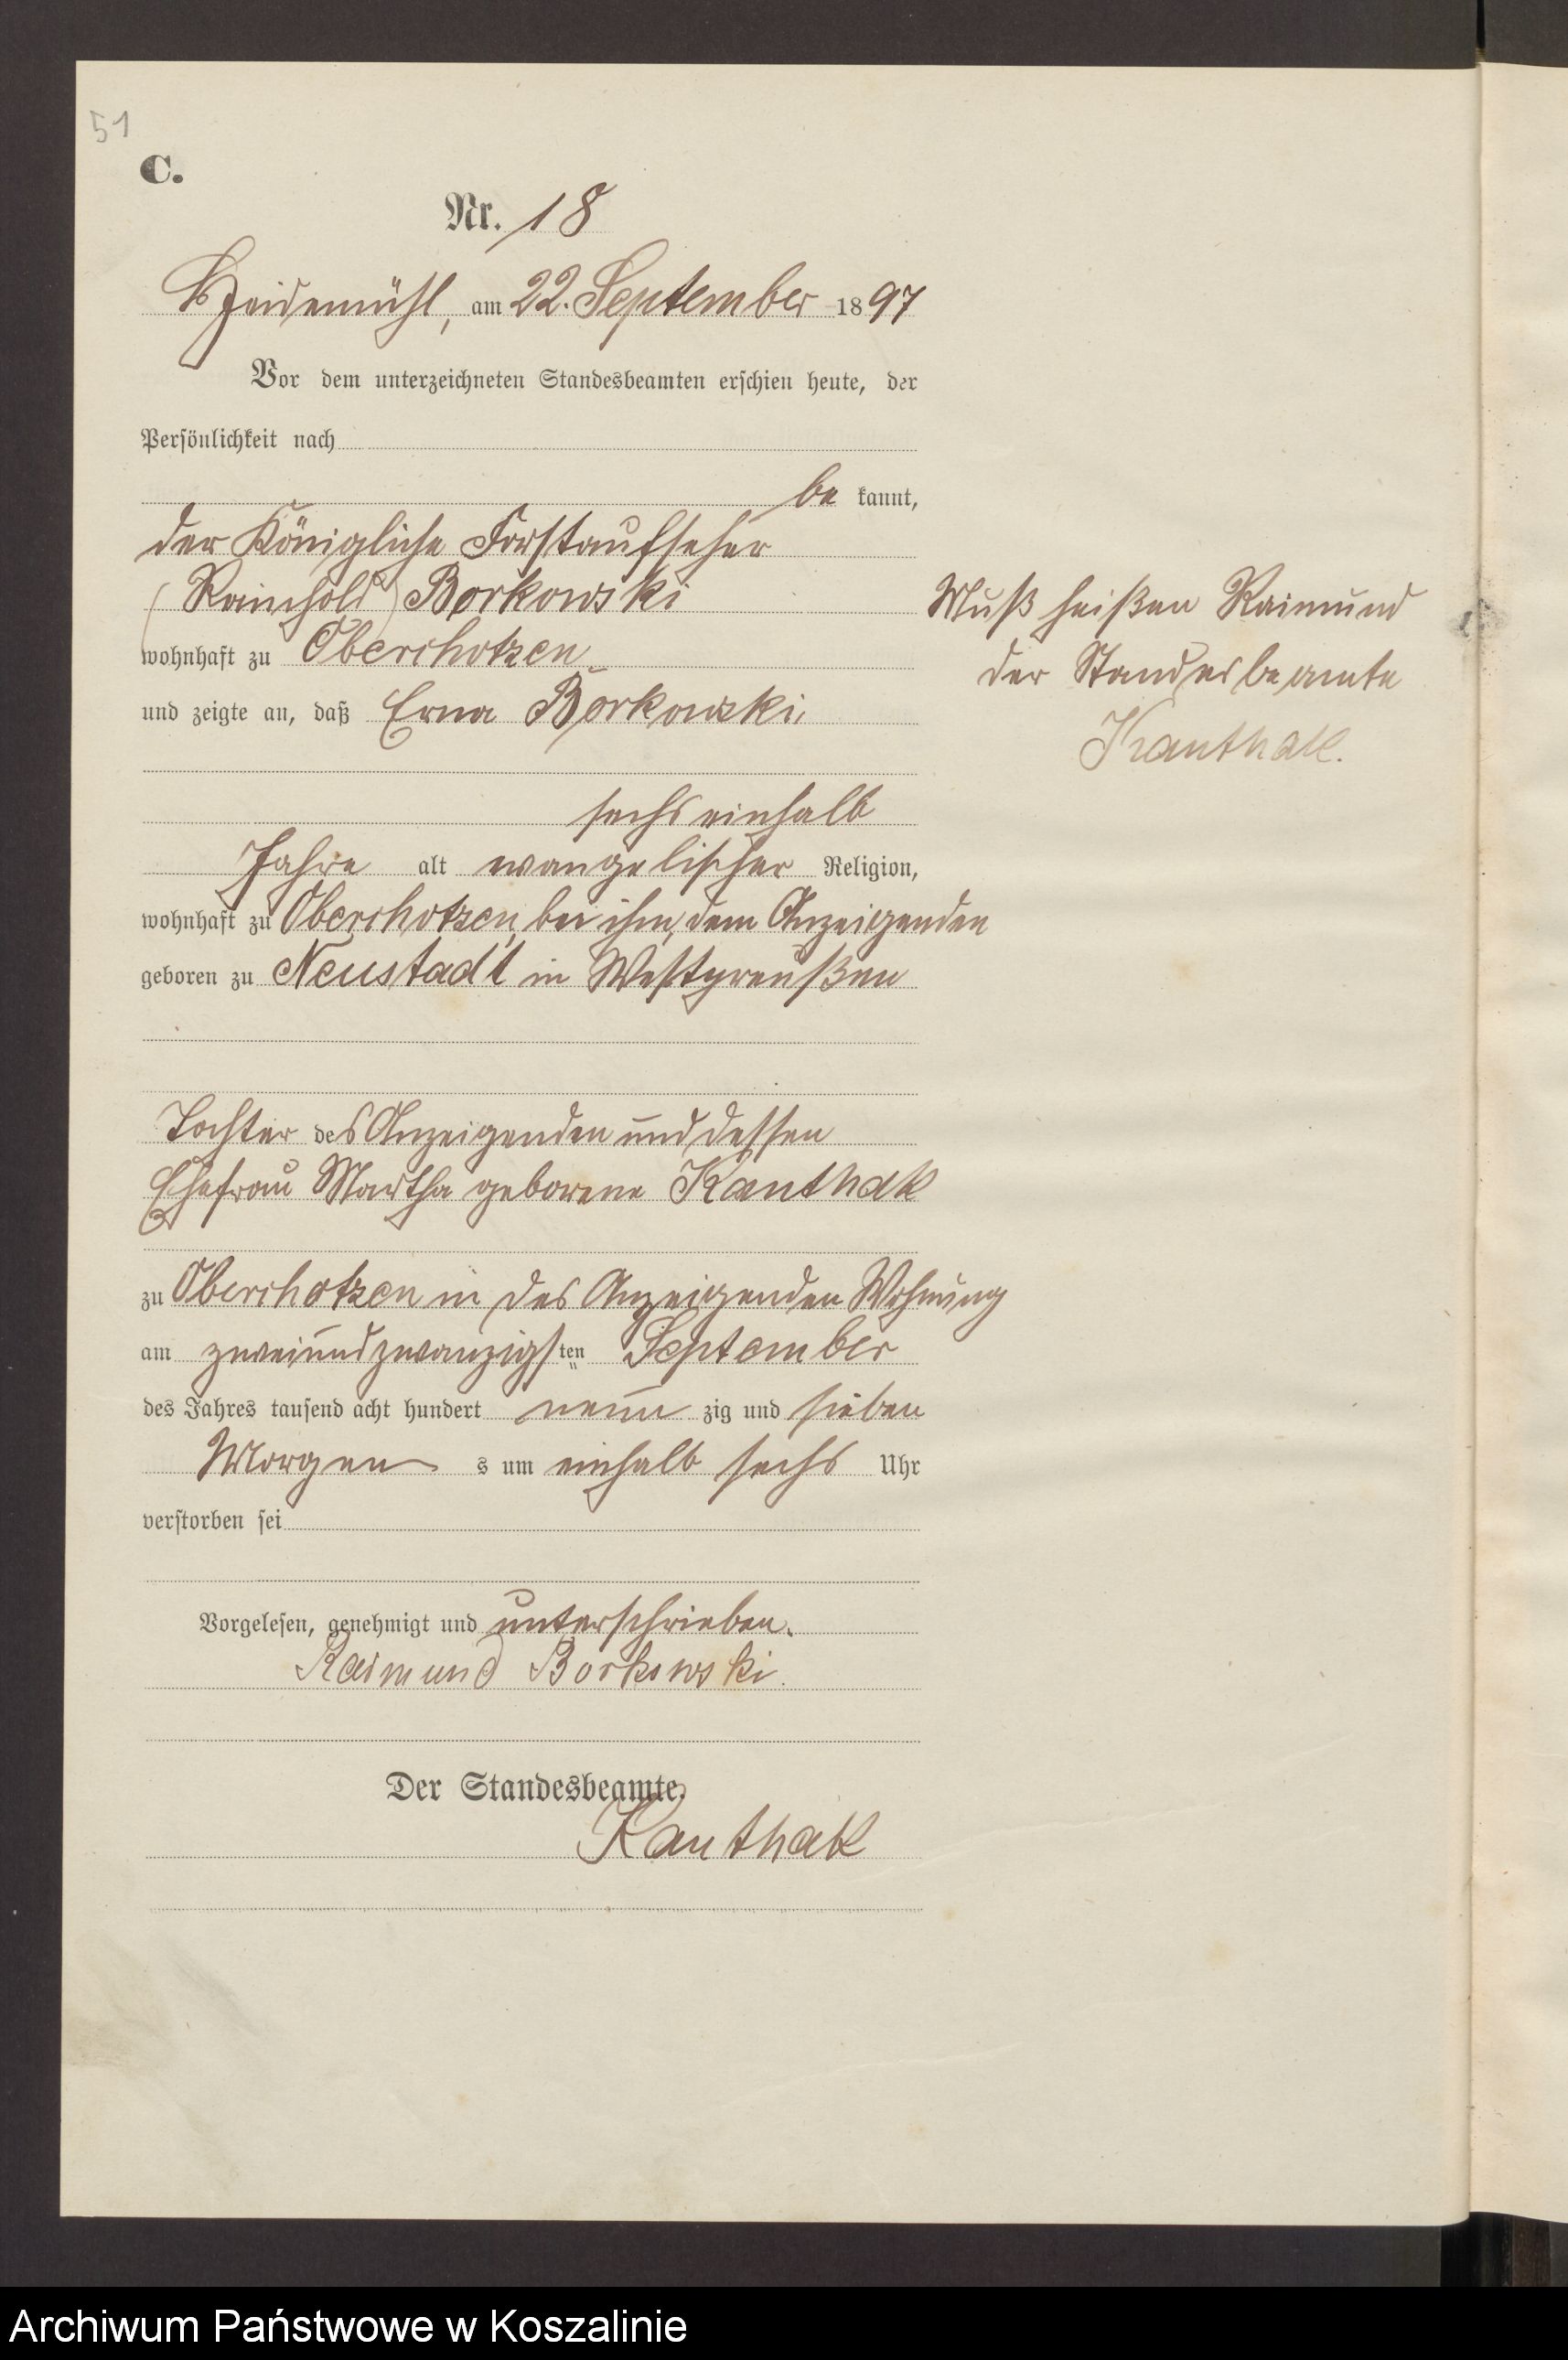 51
C.
Nr. 18
Heidemühl, am 22. September 1897
Vor dem unterzeichneten Standesbeamten erschien heute, der
Persönlichkeit nach
be kannt,
der Königliche Forstaufseher
(Reinhold) Borkowski
Muß heißen Raimund
wohnhaft zu Oberchotzen
der Standesbeamte
und zeigte an, daß Erna Borkowski,
Kanthak.
sechs einhalb
Jahre alt evangelischer Religion,
wohnhaft zu Oberchotzen, bei ihm, dem Anzeigenden
geboren zu Neustadt in Westpreußen
Tochter des Anzeigenden und dessen
Ehefrau Martha geborene Kanthak
zu Oberchotzen in des Anzeigenden Wohnung
am zweiundzwanzigsten September
des Jahres tausend acht hundert neun zig und sieben
Morgen s um einhalb sechs Uhr
verstorben sei
Vorgelesen, genehmigt und unterschrieben.
Raimund Borkowski.
Der Standesbeamte.
Kanthak
Archiwum Państwowe w Koszalinie